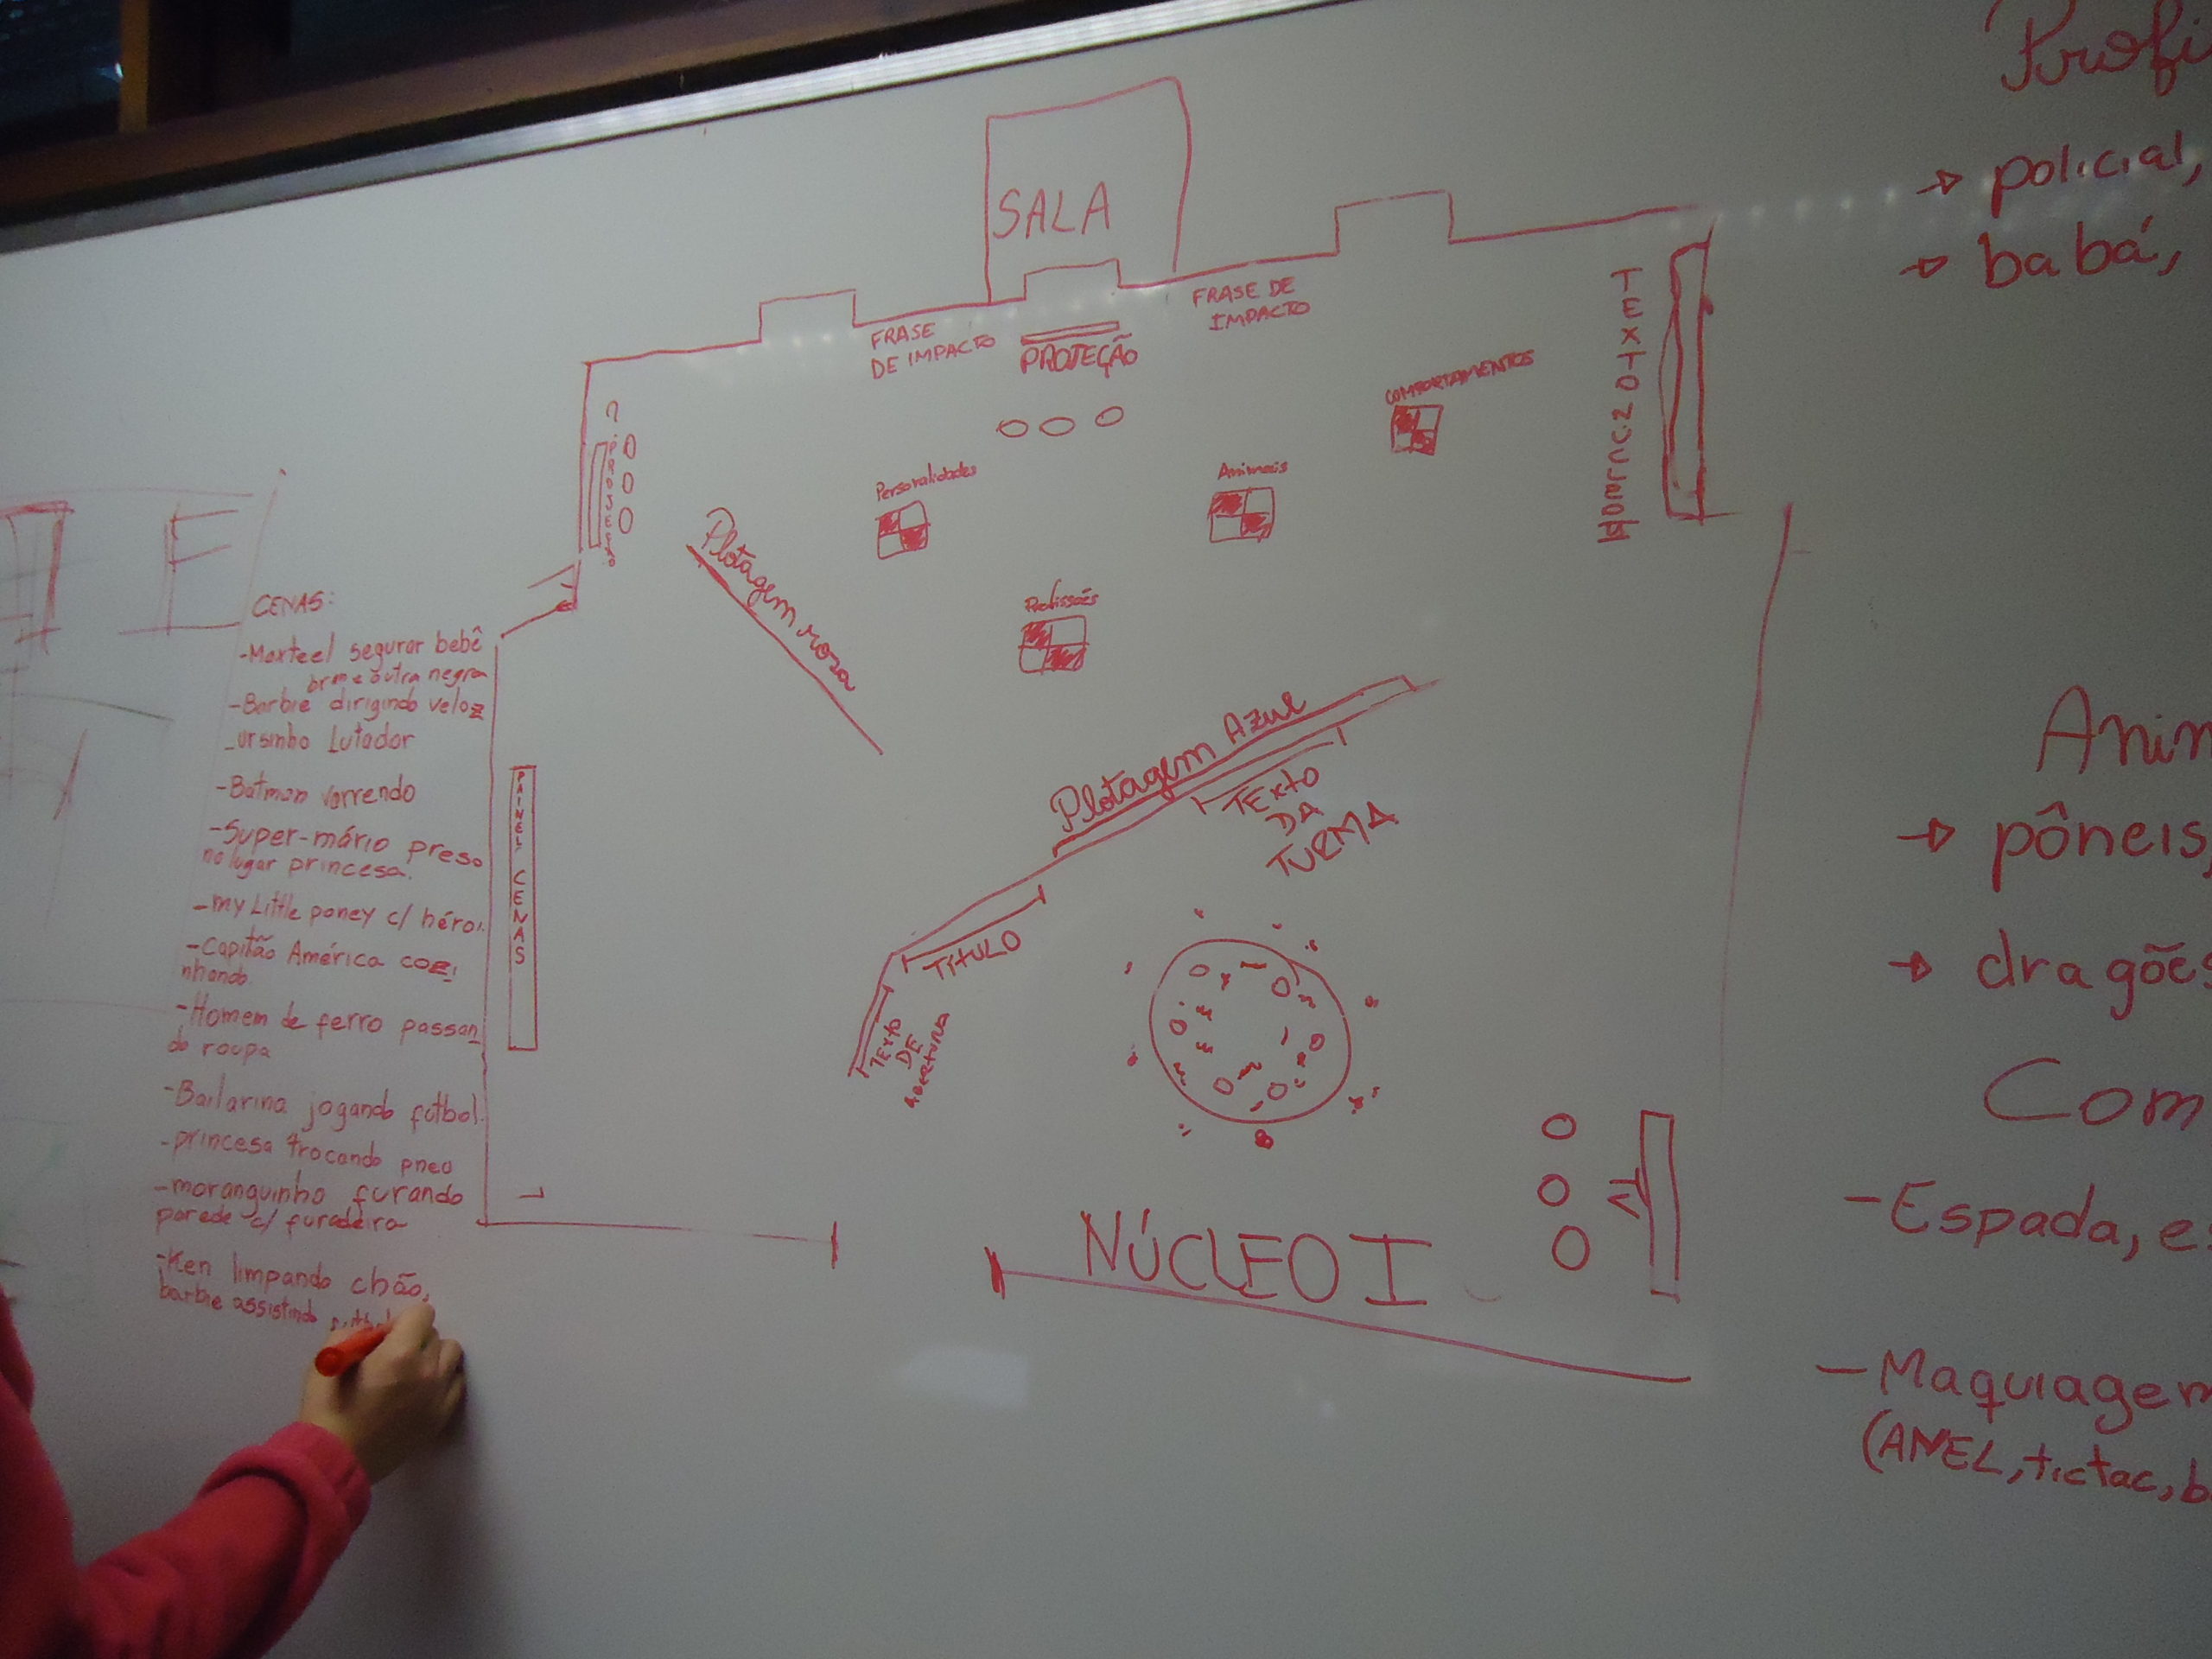 SALA
FRASE
DE IMPACTO
PROJEÇÃO
FRASE DE
IMPACTO
COMPORTAMENTOS
TEXTO
Personalidades
Animais
Profissões
Plotagem rosa
Plotagem Azul
TExto
DA
TURMA
TÍtULO
TExto
DE
ABERTURA
PAINEL CENAS
TV
NÚCLEO I
CENAS:
segurar bebê
e outra negra
-Barbie dirigindo veloz
-ursinho Lutador
-Batman varrendo
-Super-mário preso
no lugar princesa.
-my Little poney c/ héroi
-Capitão América cozi
nhando
-Homem de ferro passan
do roupa
-Bailarina jogando futbol.
-princesa trocando pneu
-moranguinho furando
parede c/ furadeira
-Ken limpando chão,
barbie assistindo
Profi
→ policial,
→ babá,
Anim
→ pôneis,
→ dragões
Com
- Espada, es
- Maquiagem
(ANEL, tictac, b